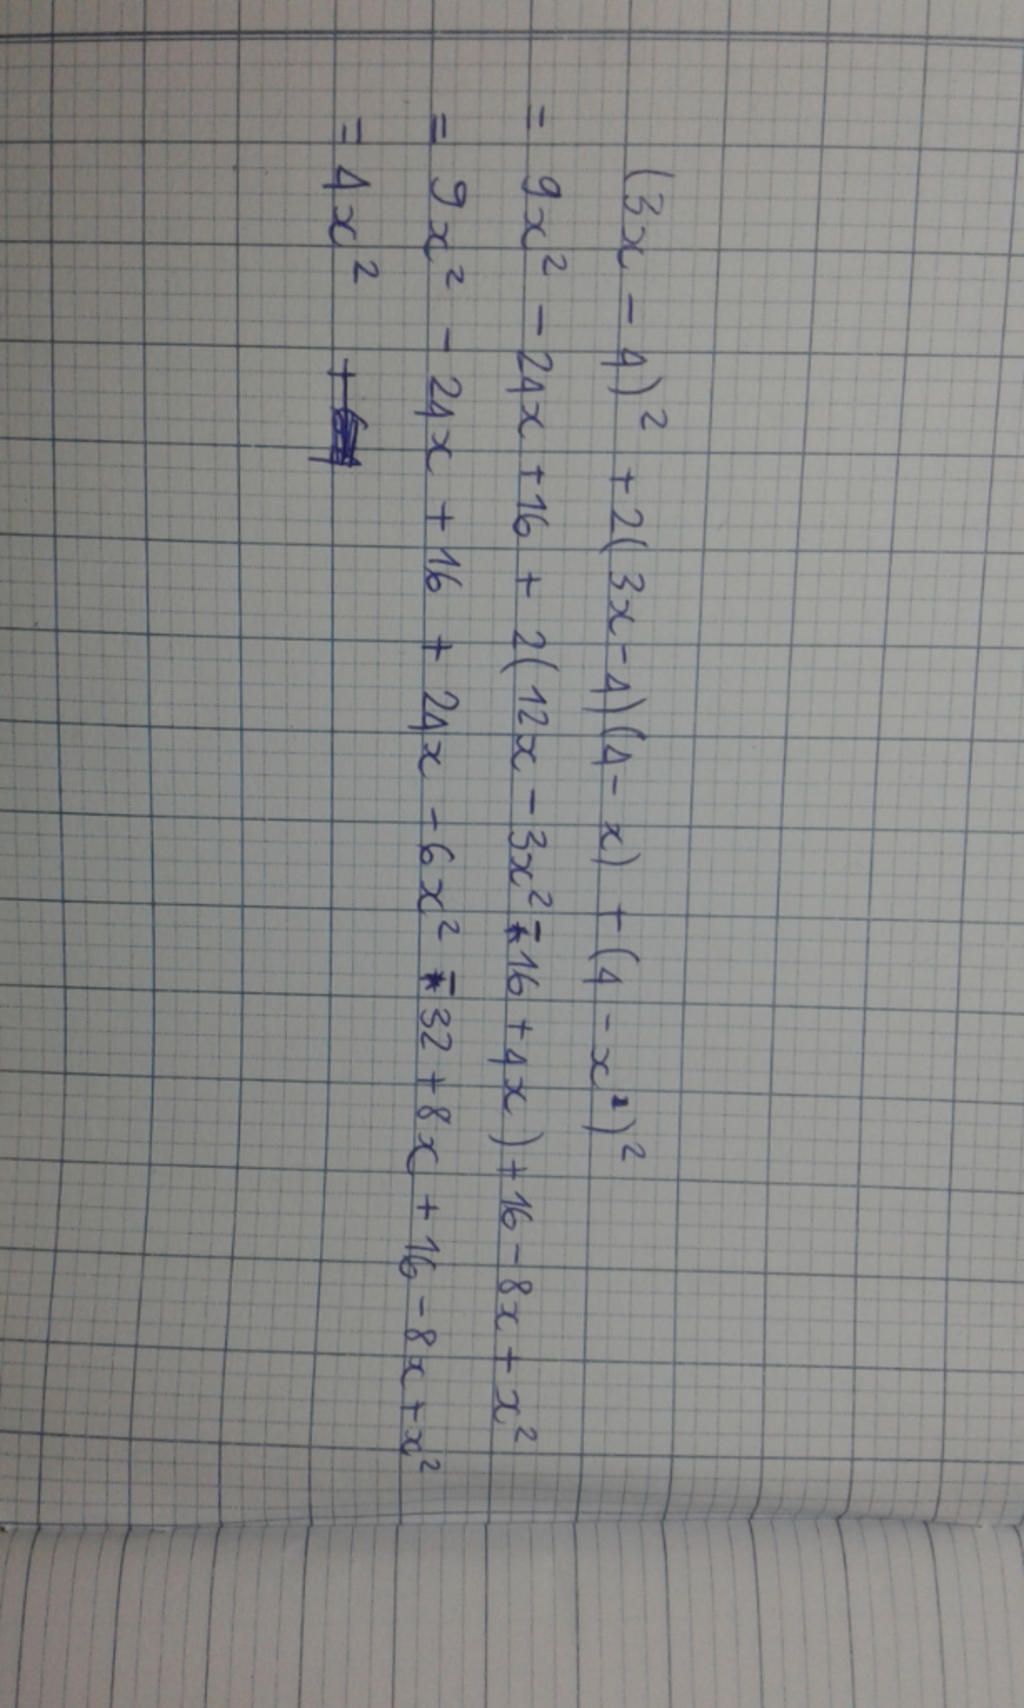 (3x - 4)² + 2(3x - 4)(4 - x) + (4 - x²)²
= 9x² - 24x + 16 + 2(12x - 3x² - 16 + 4x) + 16 - 8x + x²
= 9x² - 24x + 16 + 24x - 6x² - 32 + 8x + 16 - 8x + x²
= 4x² +